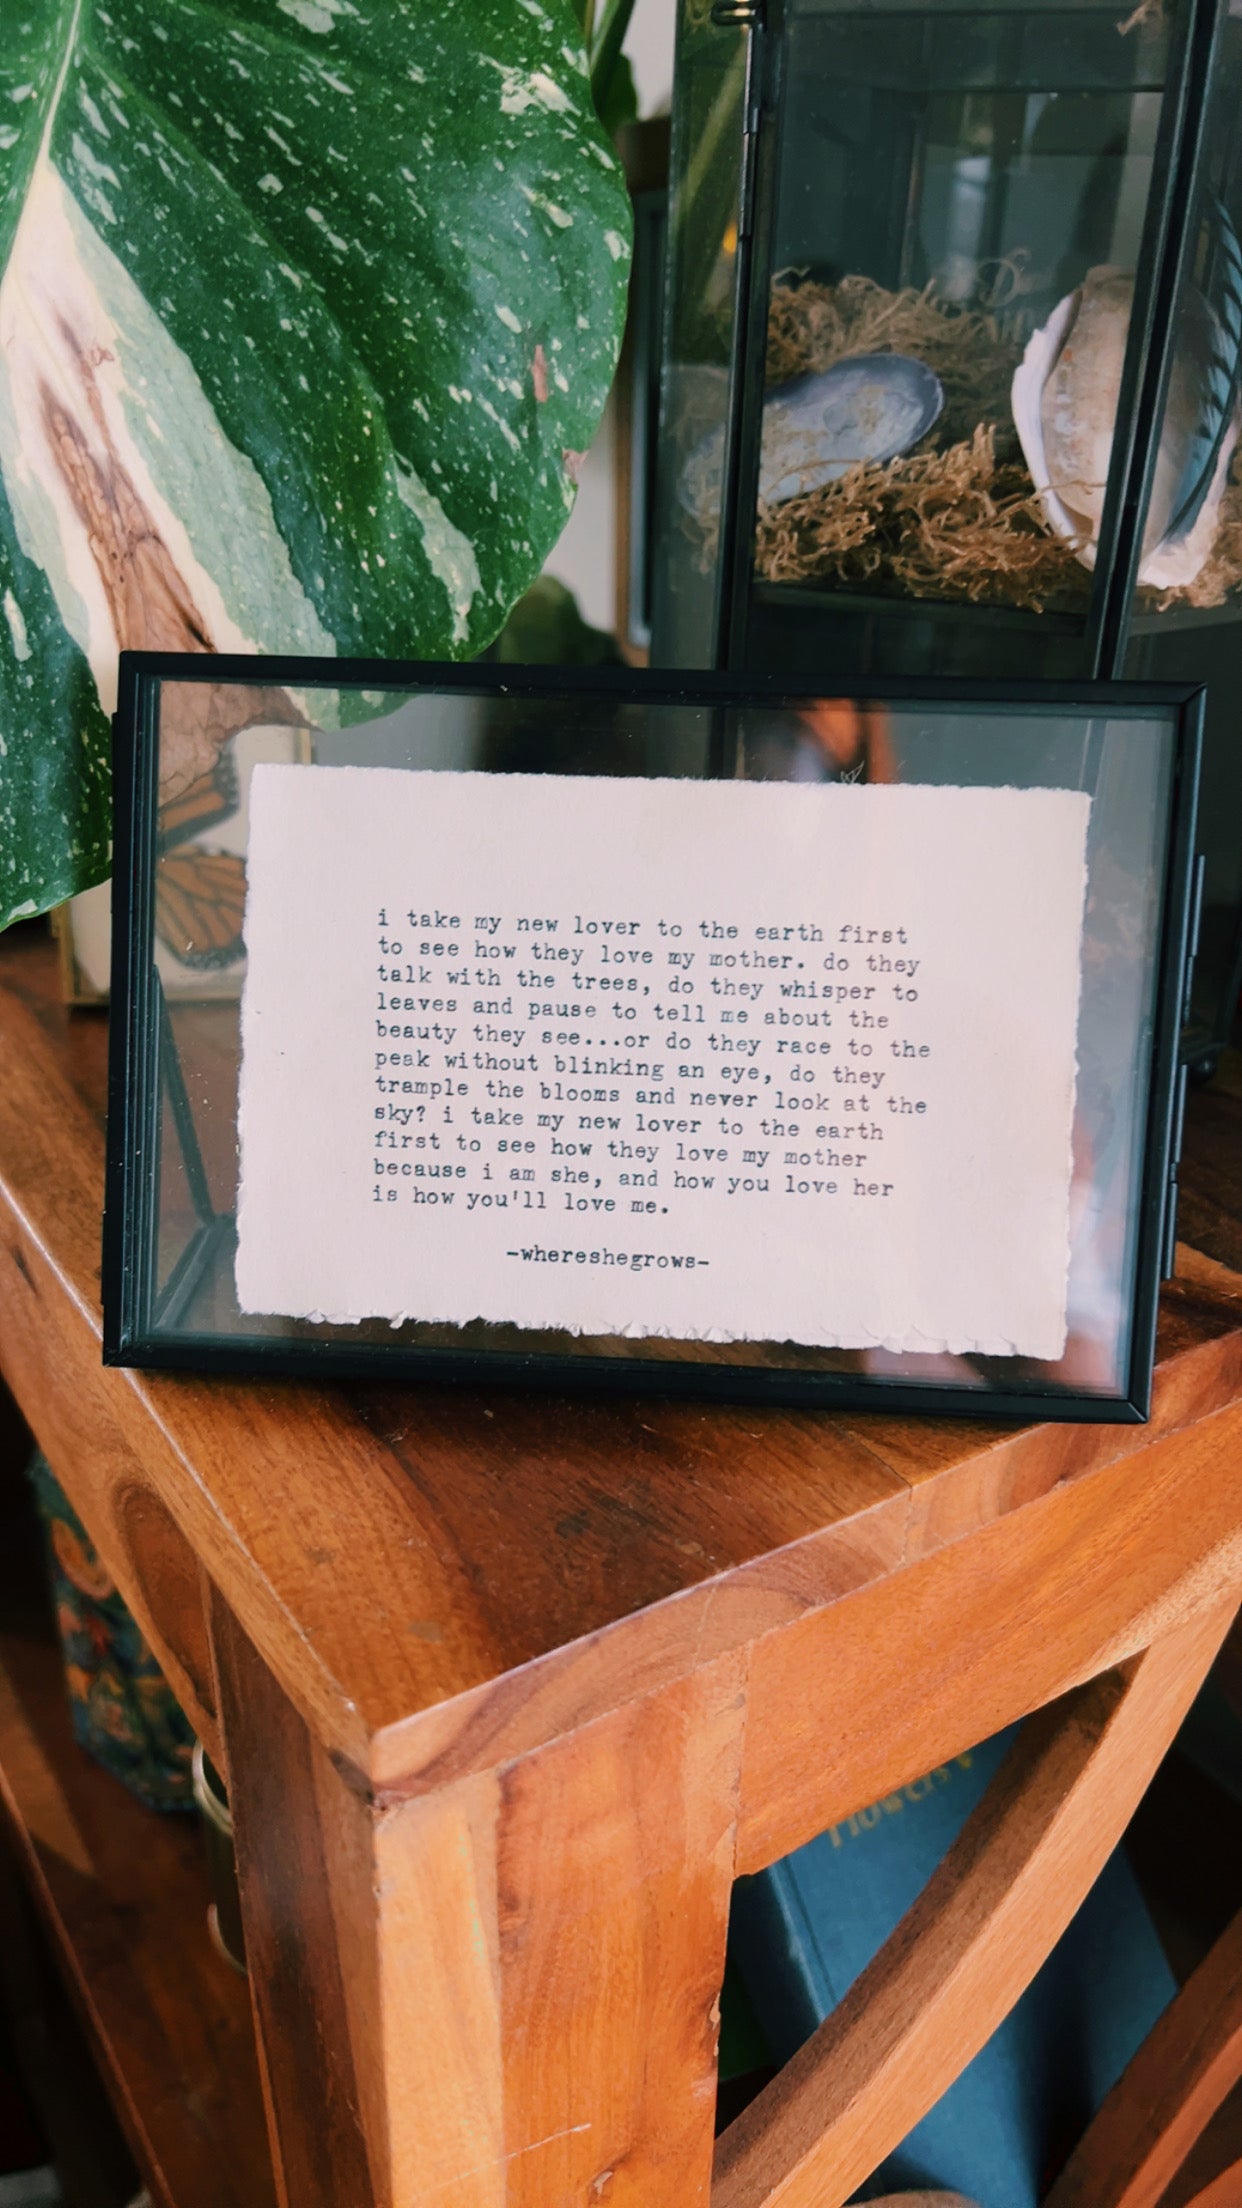 i take my new lover to the earth first
to see how they love my mother. do they
talk with the trees, do they whisper to
leaves and pause to tell me about the
beauty they see...or do they race to the
peak without blinking an eye, do they
trample the blooms and never look at the
sky? i take my new lover to the earth
first to see how they love my mother
because i am she, and how you love her
is how you'll love me.
-whereshegrows-
Flowers